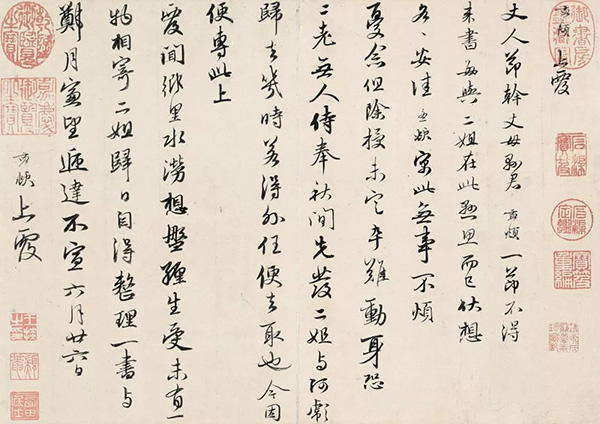 孟頫上覆
丈人節幹丈母縣君孟頫一節不得
來書每與二姐在此懸思而已伏想
各各安佳孟頫寓此無事不煩
憂念但除授未定卒難動身恐
二老無人侍奉秋間先發二姐与阿彪
歸去幾時若得外任便去取也今因
便專此上
覆聞鄉里水澇想盤纏生受未有一
物相寄二姐歸日自得整理一書与
鄭月窗望遞達不宣六月廿六日
孟頫上覆